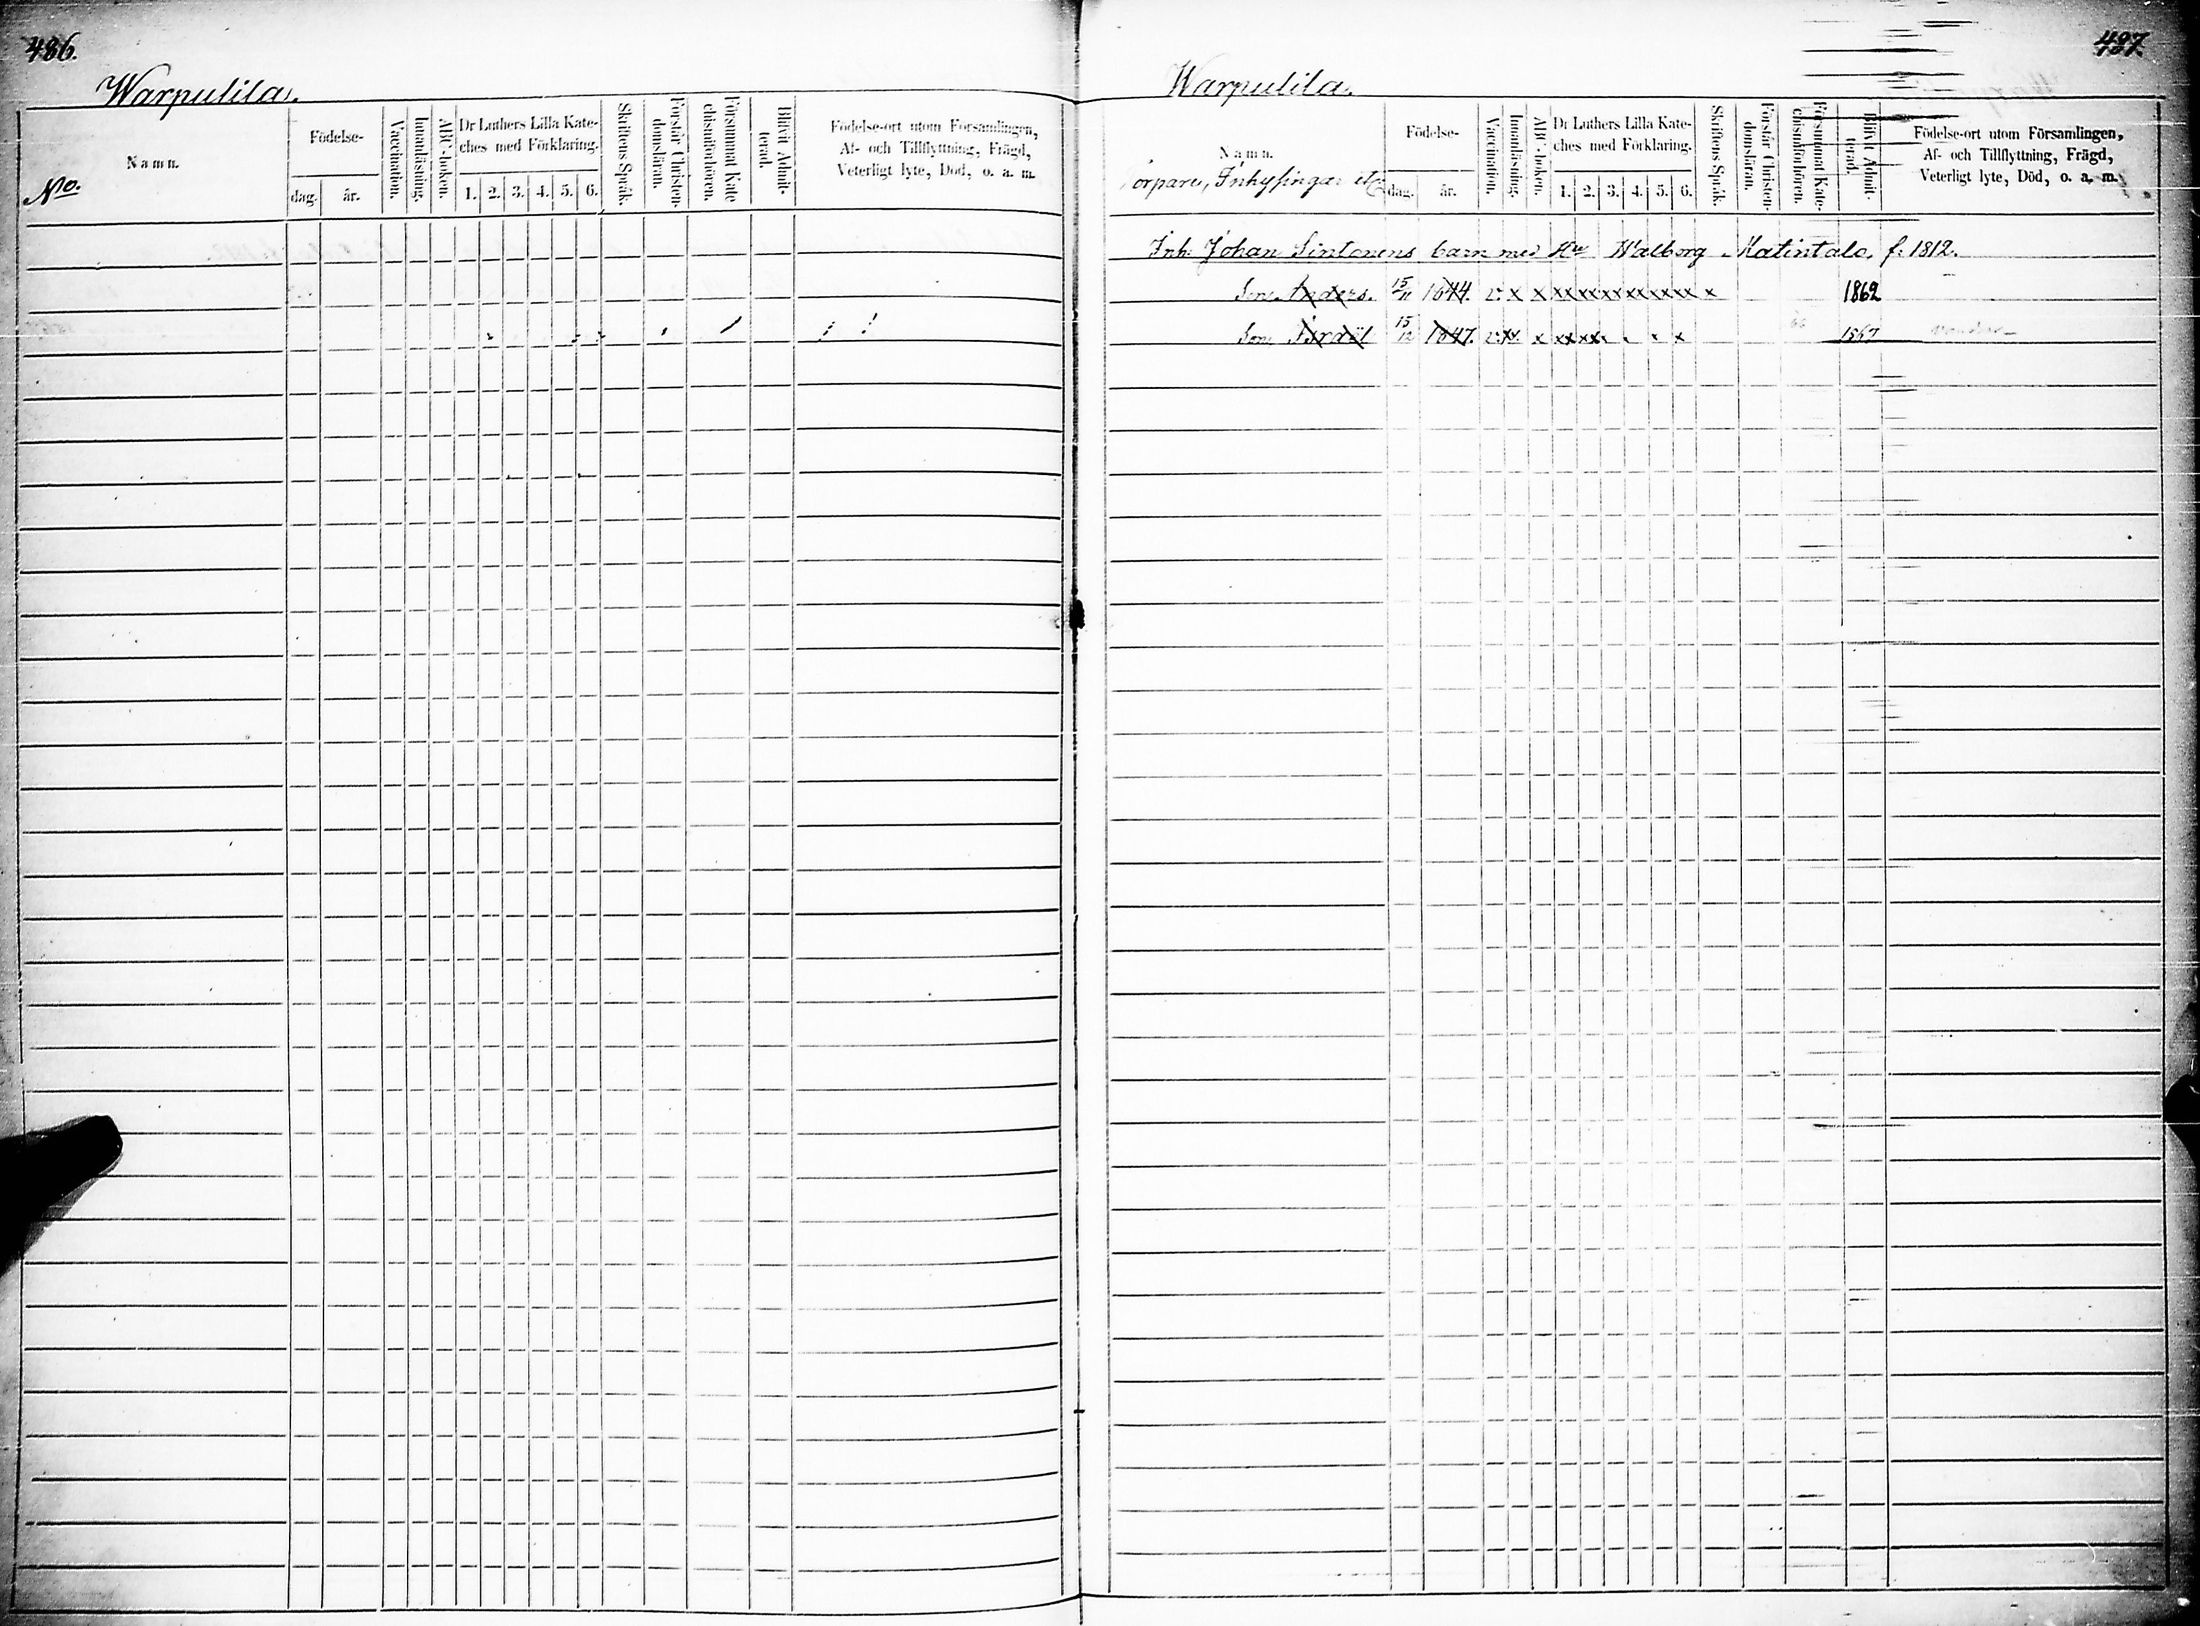 486.
Warpulila.
No.
Namn.
Födelse-
dag. år.
Vaccination.
Innanläsning.
ABC-boken.
Dr Luthers Lilla Kate-
ches med Förklaring.
1. 2. 3. 4. 5. 6.
Skriftens Språk.
Förstår Christen-
domsläran.
Försummat Kate
chismiförhören.
Blifvit Admit-
terad.
Födelse-ort utom Församlingen,
Af- och Tillflyttning, Frägd,
Veterligt lyte, Död, o. a. m.
487.
Warpulila.
Namn.
Torpare, Inhysingar etc
Födelse-
dag. år.
Vaccination.
Innanläsning.
ABC-boken.
Dr Luthers Lilla Kate-
ches med Förklaring.
1. 2. 3. 4. 5. 6.
Skriftens Språk.
Förstår Christen-
domsläran.
Försummat Kate-
chismiförhören.
Blifvit Admit-
terad.
Födelse-ort utom Församlingen,
Af- och Tillflyttning, Frägd,
Veterligt lyte, Död, o. a. m.
Inh. Johan Sintonens barn med Hu Walborg Matintalo, f. 1812.
Son Anders. 15/11 1844. v. x x xx xx xx xx xx xx x 1862
Son Israël 15/12 1847. v. xx. x xx xx x x x 1867